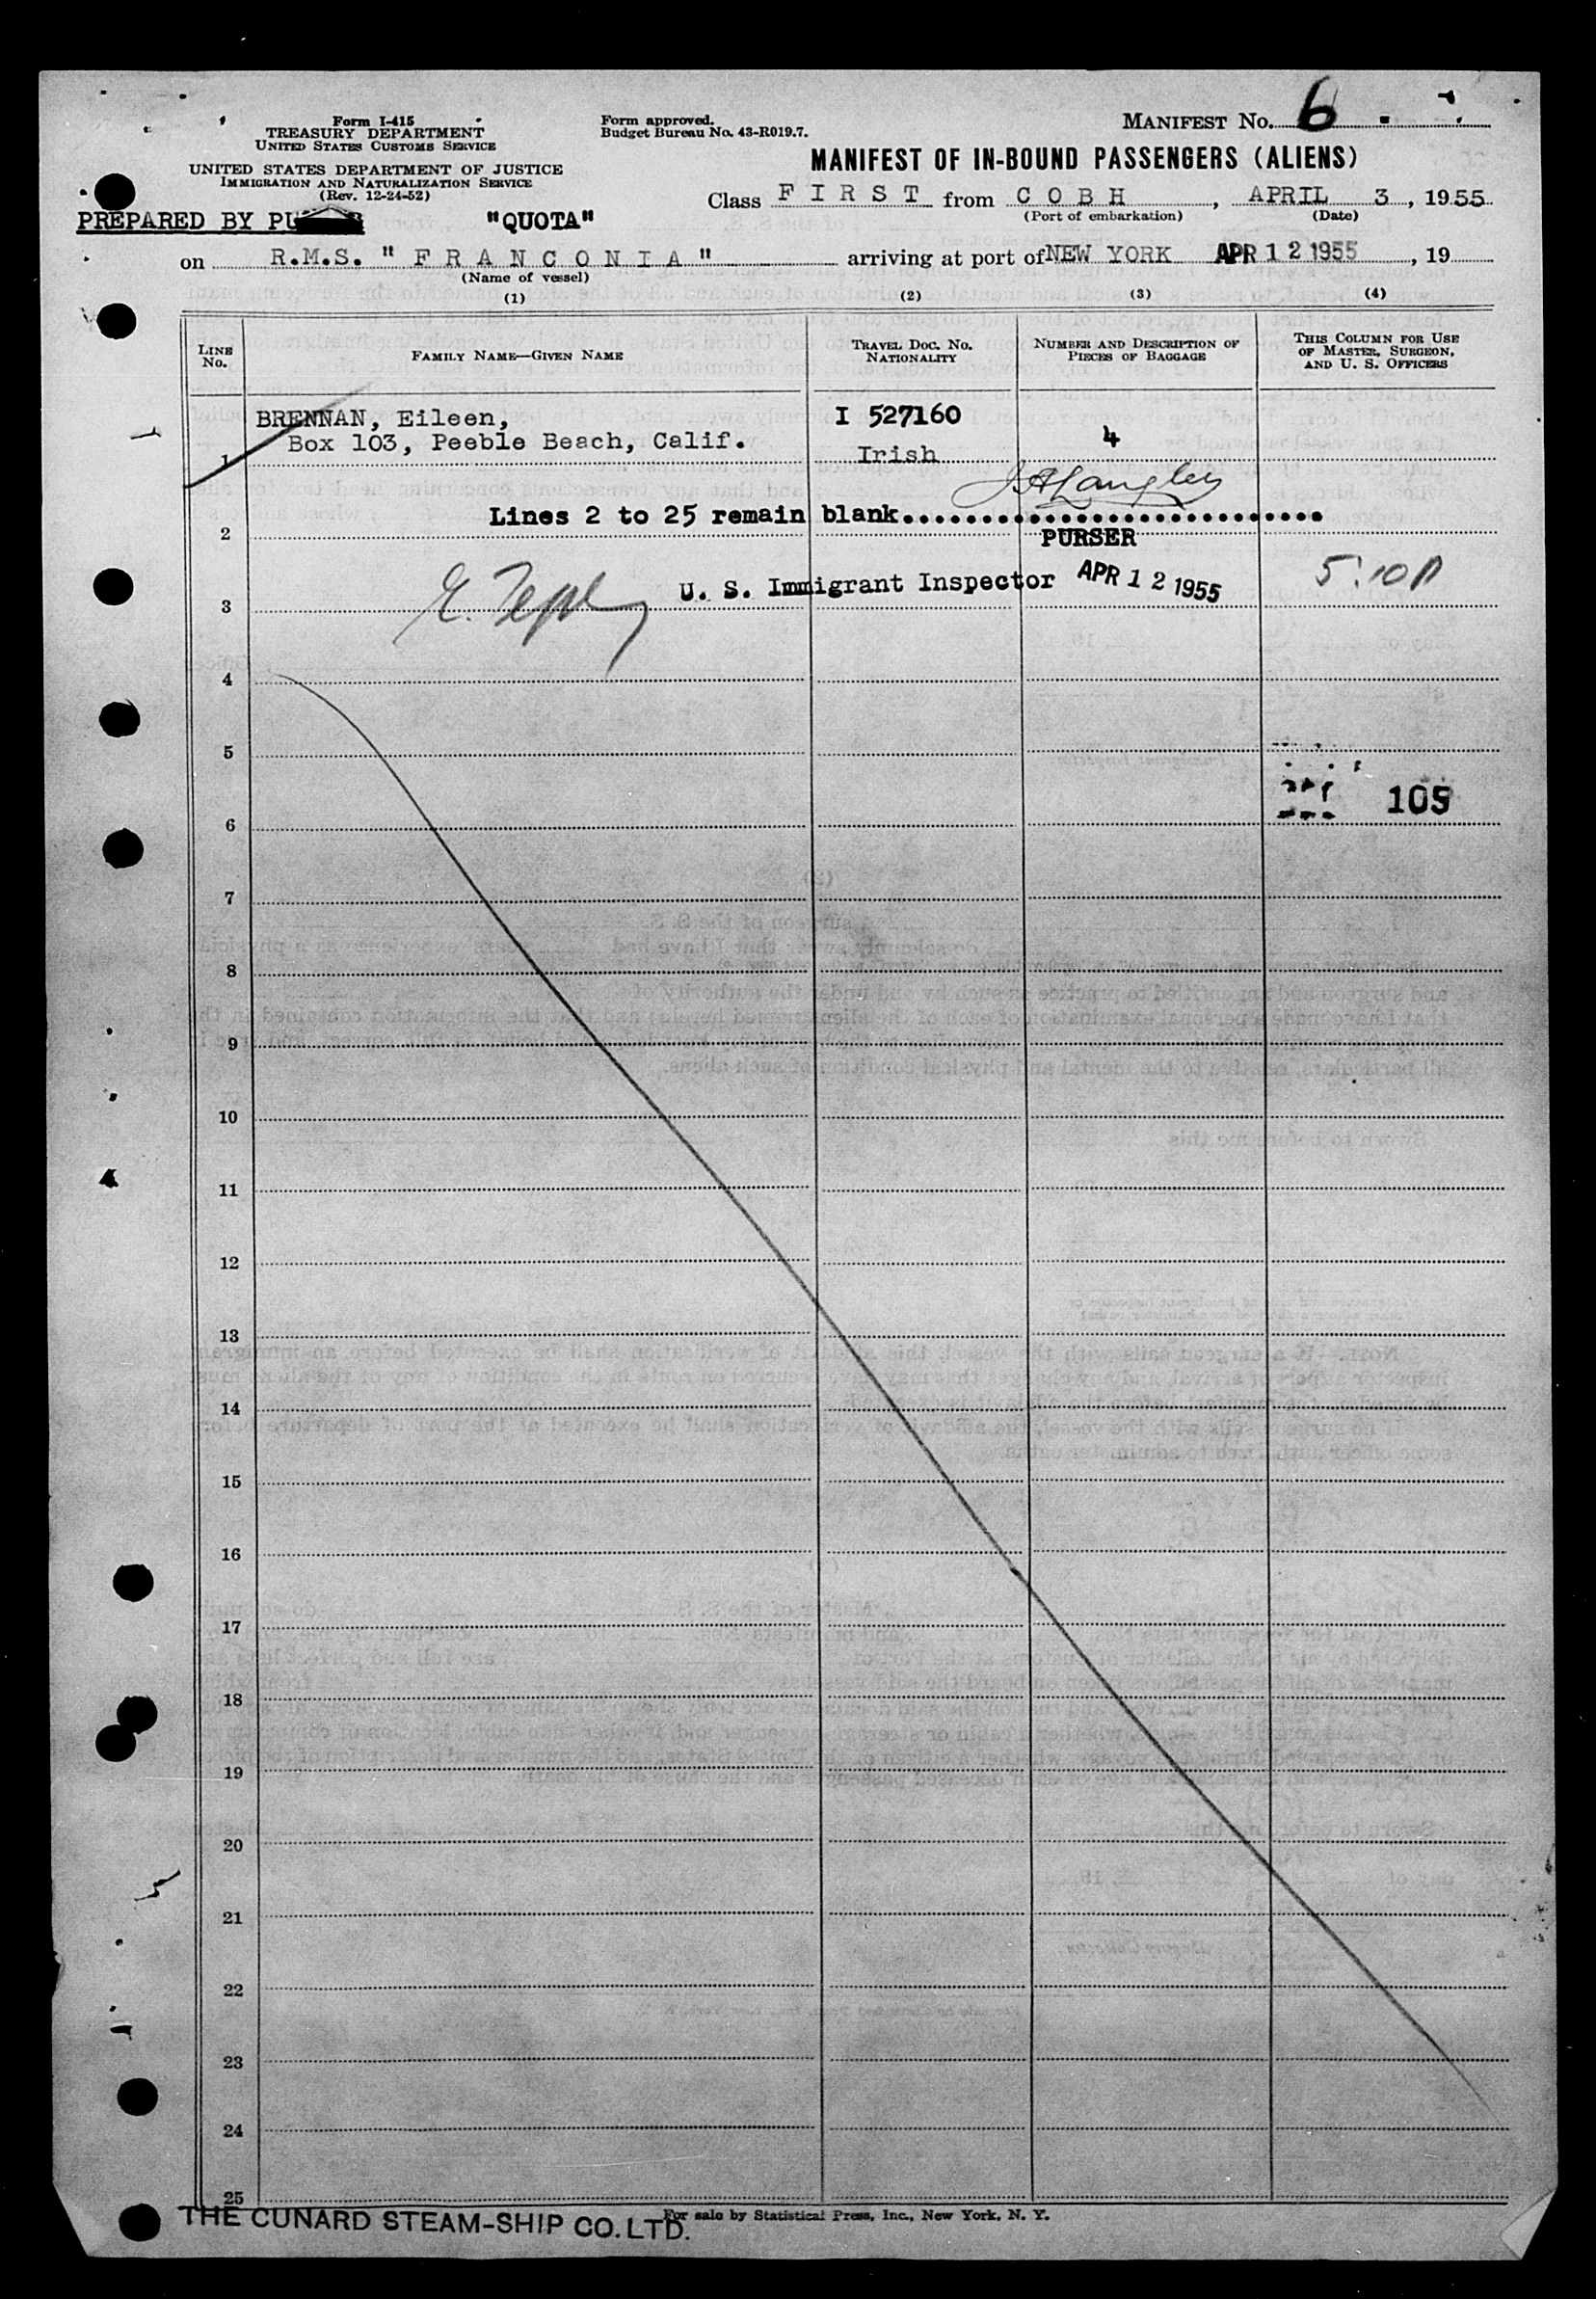 Form I-415
TREASURY DEPARTMENT
UNITED STATES CUSTOMS SERVICE
UNITED STATES DEPARTMENT OF JUSTICE
IMMIGRATION AND NATURALIZATION SERVICE
(Rev. 12-24-52)
Form approved.
Budget Bureau No. 43-R019.7.
MANIFEST NO. 6
MANIFEST OF IN-BOUND PASSENGERS (ALIENS)
Class FIRST from COBH, APRIL 3, 1955
(Port of embarkation) (Date)
PREPARED BY
"QUOTA"
on R.M.S. "FRANCONIA" arriving at port of NEW YORK APR 12 1955, 19
(Name of vessel)
(1) (2) (3) (4)
LINE NO.
FAMILY NAME—GIVEN NAME
TRAVEL DOC. NO.
NATIONALITY
NUMBER AND DESCRIPTION OF
PIECES OF BAGGAGE
THIS COLUMN FOR USE
OF MASTER, SURGEON,
AND U. S. OFFICERS
BRENNAN, Eileen, I 527160
Box 103, Peeble Beach, Calif. 4
1 Irish
Langley
Lines 2 to 25 remain blank..............................
2 PURSER
U. S. Immigrant Inspector APR 12 1955 5:10
3
4
5
105
6
7
8
9
10
11
12
13
14
15
16
17
18
19
20
21
22
23
24
25
THE CUNARD STEAM-SHIP CO. LTD.
For sale by Statistical Press, Inc., New York, N. Y.